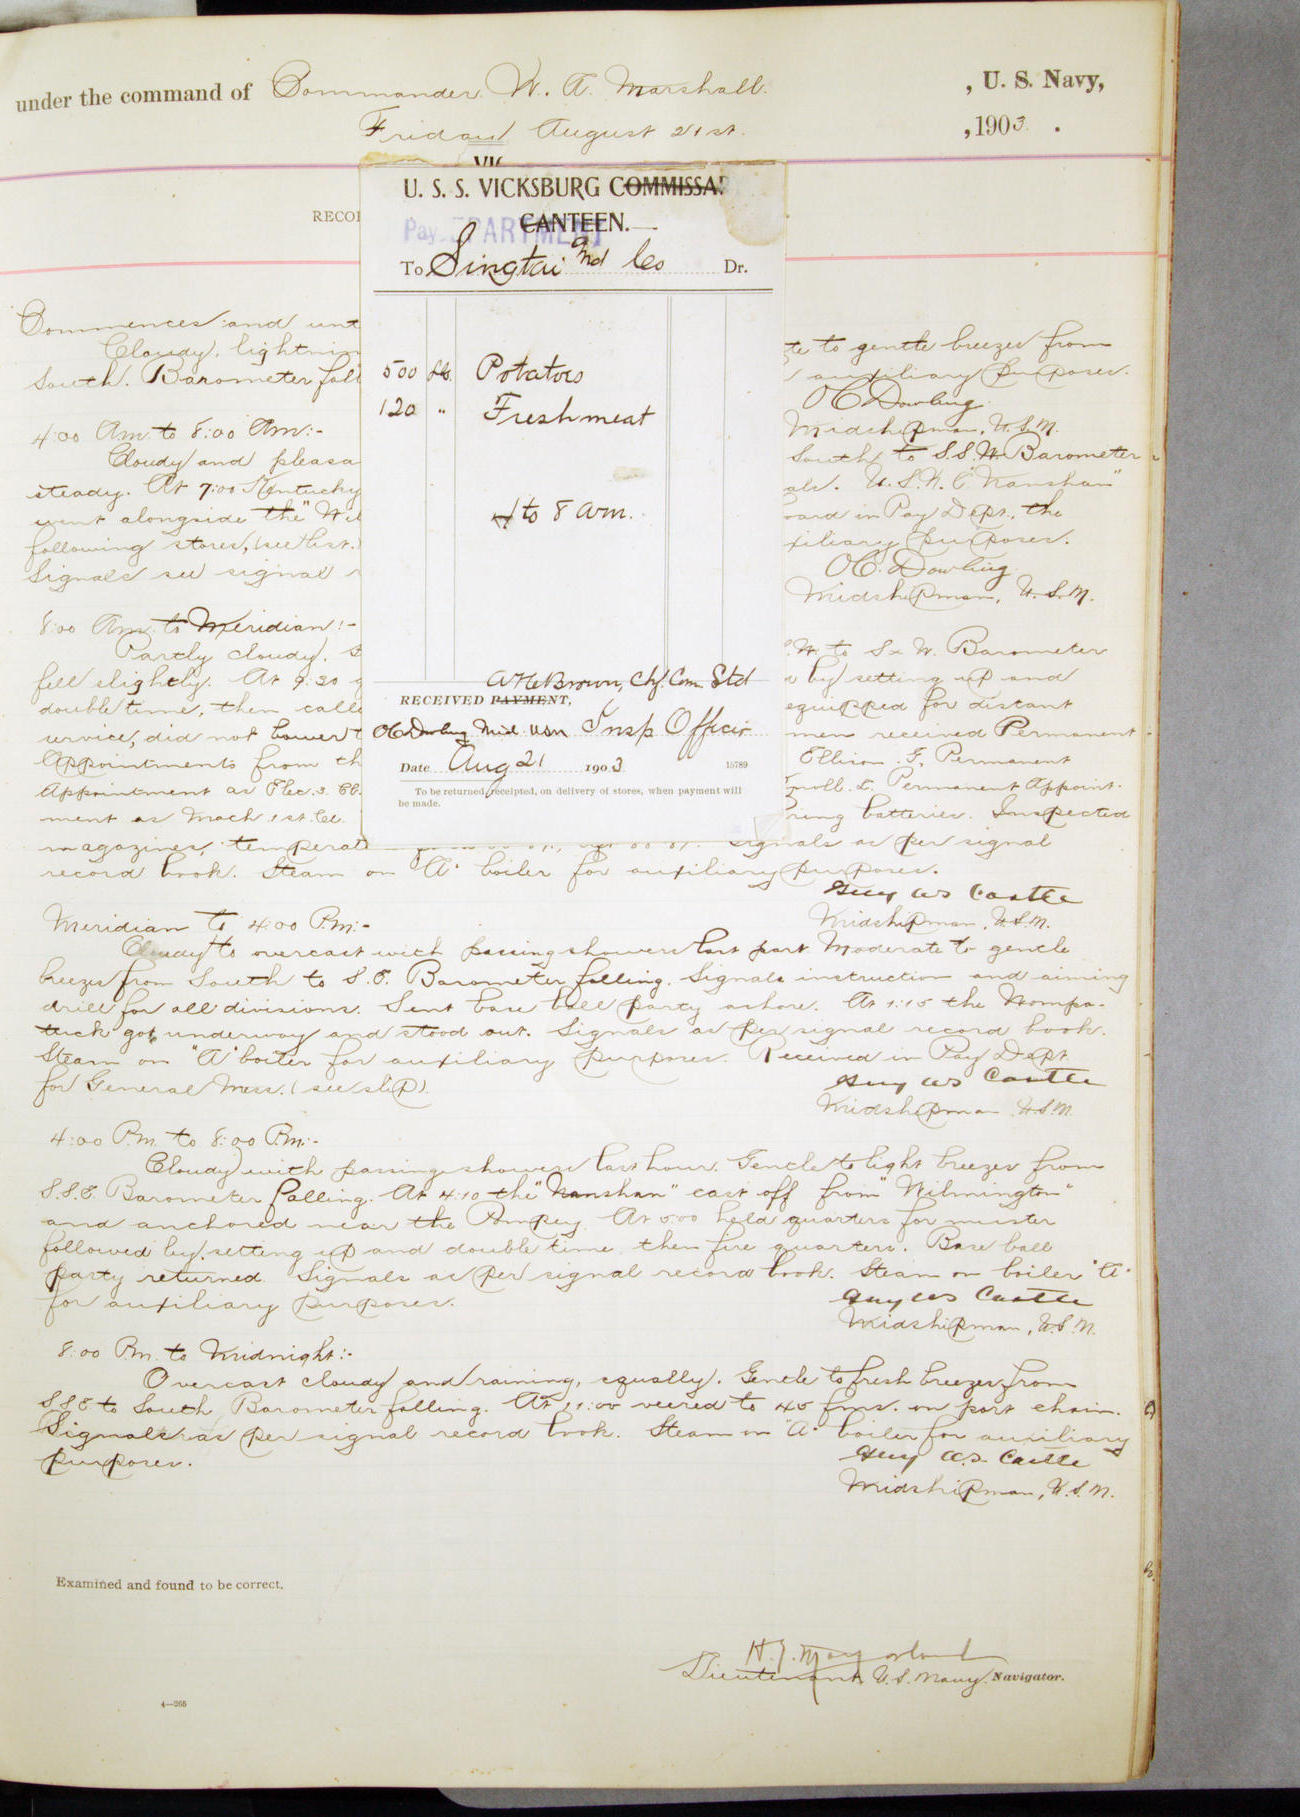 under the command of Commander W. A. Marshall. , U. S. Navy,
Friday August 21st. , 1903.
RECO
U. S. S. VICKSBURG COMMISSA
CANTEEN.
Pay DEPARTMENT
To Singtai and Co Dr.
500 lb. Potatoes
120 " Fresh meat
4 to 8 am.
A He Brown, Chf. Com. Std
RECEIVED PAYMENT,
OC Dowling Mid. USN Insp Officer
Date Aug 21 1903
15789
To be returned, receipted, on delivery of stores, when payment will
be made.
Commences and unt
Cloudy, lightnin te to gentle breezes from
South. Barometer fall auxiliary purposes.
OC Dowling
Midshipman, U.S.N.
4:00 Am. to 8:00 Am:-
Cloudy and pleasa South to S.S.W. Barometer
steady. At 7:00 Kentucky als. U.S.N.C. "Nanshan"
went alongside the "Wil oard in Pay Dept. the
following stores, (see list.) xiliary purposes.
Signals see signal r
OC. Dowling
Midshipman, U.S.N.
8:00 Am. to Meridian:-
Partly cloudy. W. to S x W. Barometer
fell slightly. At 9:30 by setting up and
double time, then calle equipped for distant
service, did not lower men received Permanent
Appointments from th Ellison. F, Permanent
Appointment as Elec. 3. Cl. noll. L. Permanent Appoint-
ment as Mach. 1st. Cl. ring batteries. Inspected
magazines, temperat Signals as per signal
record book. Steam on "A" boiler for auxiliary purposes.
Guy WS Castle
Midshipman, U.S.N.
Meridian to 4:00 P.M:-
Cloudy to overcast with passing showers last part. Moderate to gentle
breezes from South to S.E. Barometer falling. Signals instruction and aiming
drill for all divisions. Sent base ball party ashore. At 1:15 the Nompa-
tuck got underway and stood out. Signals as per signal record book.
Steam on "A" boiler for auxiliary purposes. Received in Pay Dept
for General Mess. (see slip).
Guy WS Castle
Midshipman U.S.N.
4:00 P.M. to 8:00 P.M:-
Cloudy with passing showers last hour. Gentle to light breezes from
S.S.E. Barometer falling. At 4:10 the "Nanshan" cast off from "Wilmington"
and anchored near the Pompey. At 5:00 held quarters for muster
followed by setting up and double time, then fire quarters. Base ball
party returned. Signals as per signal record book. Steam on boiler "A"
for auxiliary purposes.
Guy WS Castle
Midshipman, U.S.N.
8:00 P.M. to Midnight:-
Overcast cloudy and raining, squally. Gentle to fresh breezes from
SSE to South. Barometer falling. At 11:00 veered to 45 fms. on port chain.
Signals as per signal record book. Steam on "A" boiler for auxiliary
purposes.
Guy W.S. Castle
Midshipman, U.S.N.
Examined and found to be correct.
Lieutenant U.S. Navy. Navigator.
4—265